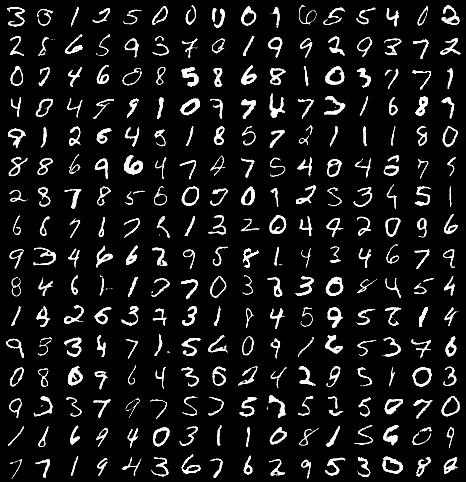 3 8 1 2 5 0 0 0 0 1 6 5 5 4 0 2
2 8 6 5 9 3 7 0 1 9 9 2 9 3 7 2
0 7 4 6 0 8 5 8 6 8 1 0 3 7 7 1
4 0 4 9 9 1 0 7 7 4 7 3 1 6 8 7
9 1 2 6 4 5 1 8 5 7 2 1 1 1 8 0
8 8 6 9 6 4 7 4 7 5 4 0 4 6 7 5
2 8 7 8 5 6 0 7 0 1 2 5 3 4 5 1
6 6 7 1 7 5 1 3 2 0 4 9 2 0 9 6
9 3 4 6 6 2 9 5 8 1 4 3 4 6 7 9
8 4 6 1 1 7 7 0 3 7 3 0 8 4 5 4
1 9 2 6 3 7 3 1 9 4 5 9 5 2 1 4
9 3 3 4 7 1 5 6 0 9 1 6 5 3 7 6
0 8 0 9 6 4 3 6 2 4 2 9 5 1 0 3
9 2 3 7 9 7 5 7 5 7 5 2 5 0 7 0
1 6 6 9 4 0 3 1 1 0 8 1 5 6 0 9
7 7 1 9 4 3 6 7 6 2 9 5 3 0 8 2